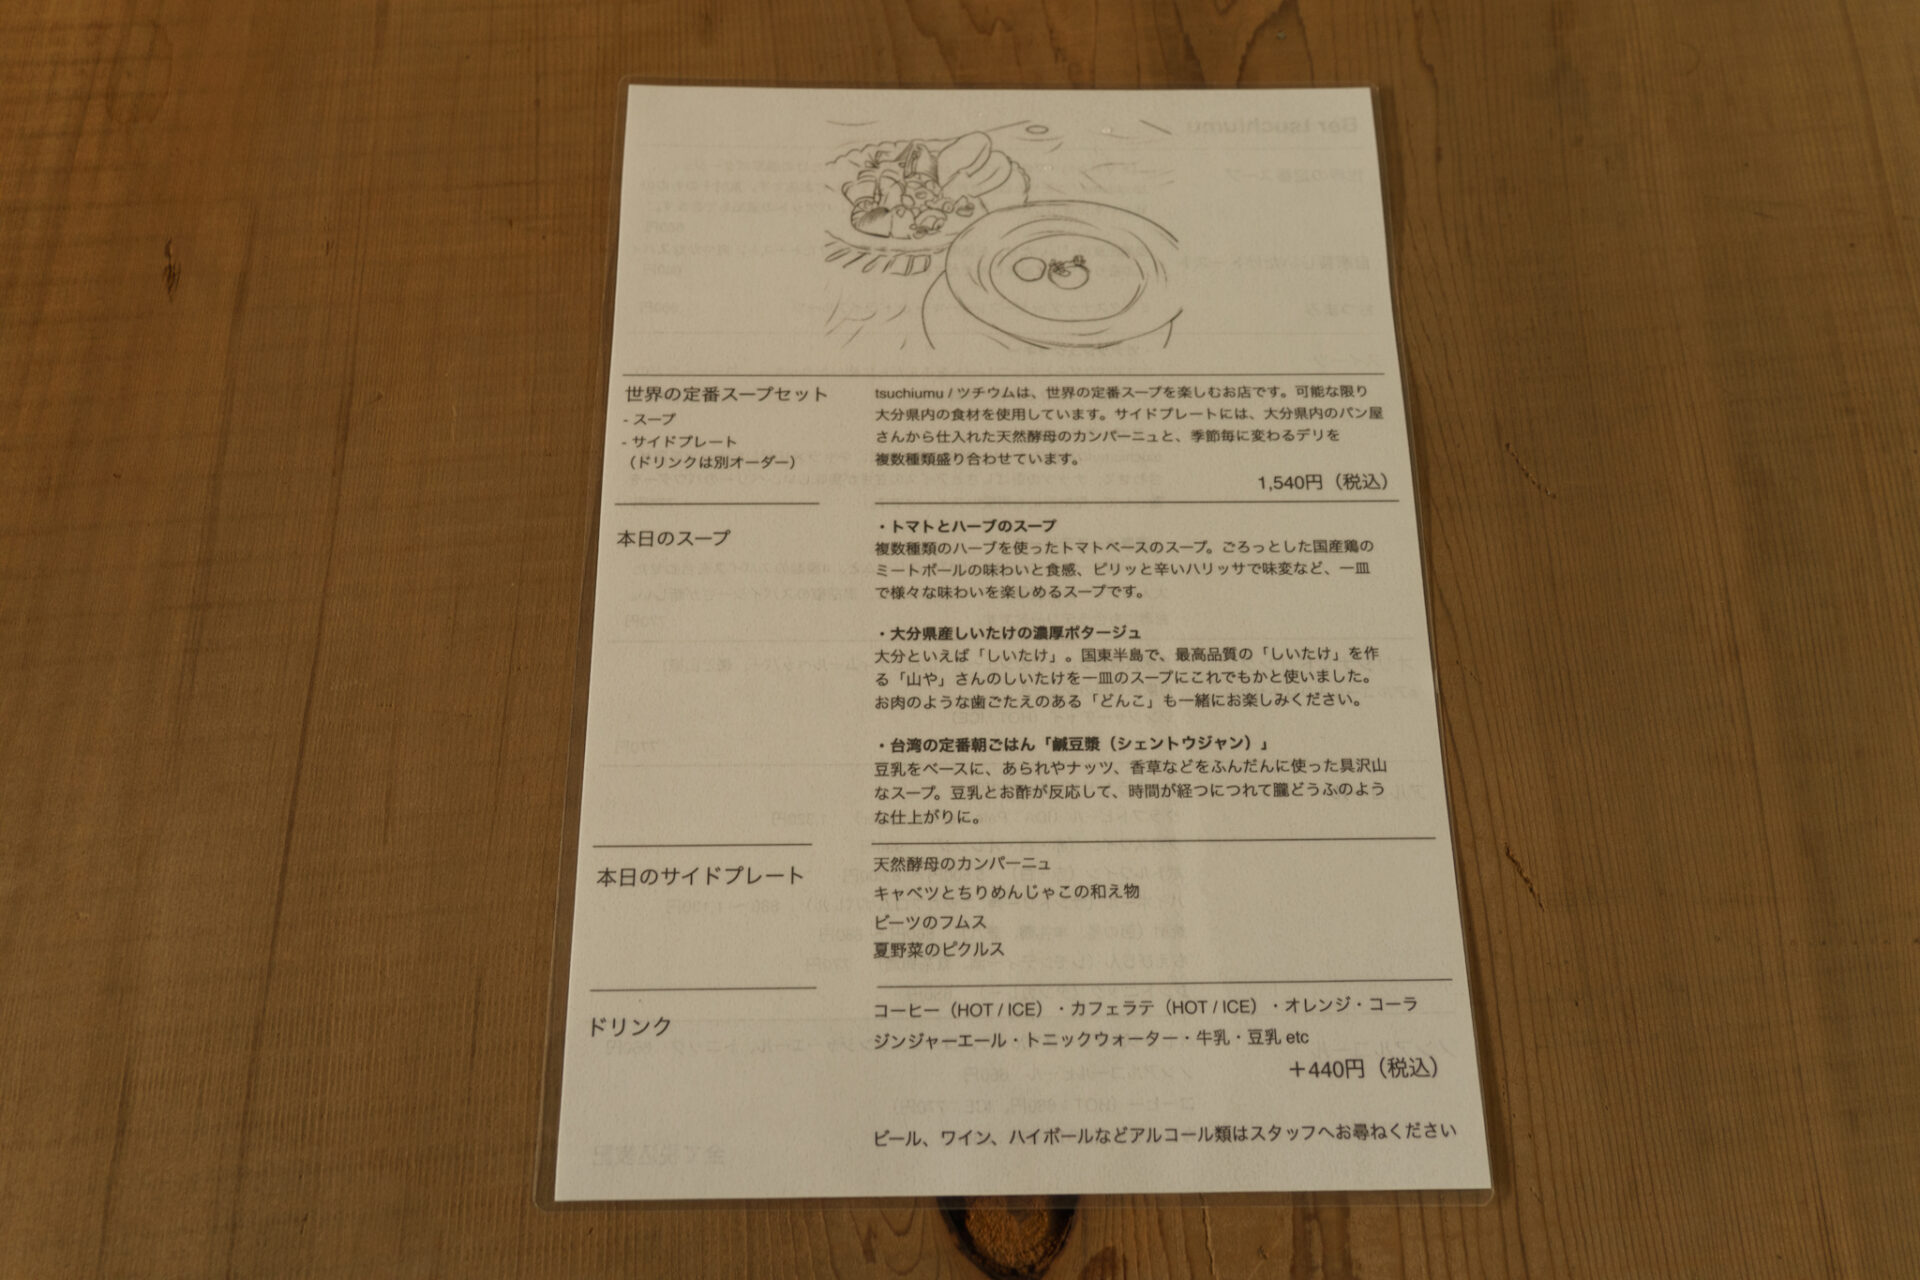 世界の定番スープセット
- スープ
- サイドプレート
（ドリンクは別オーダー）
tsuchiumu / ツチウムは、世界の定番スープを楽しむお店です。可能な限り
大分県内の食材を使用しています。サイドプレートには、大分県内のパン屋
さんから仕入れた天然酵母のカンパーニュと、季節毎に変わるデリを
複数種類盛り合わせています。
1,540円（税込）
本日のスープ
・トマトとハーブのスープ
複数種類のハーブを使ったトマトベースのスープ。ごろっとした国産鶏の
ミートボールの味わいと食感、ピリッと辛いハリッサで味変など、一皿
で様々な味わいを楽しめるスープです。
・大分県産しいたけの濃厚ポタージュ
大分といえば「しいたけ」。国東半島で、最高品質の「しいたけ」を作
る「山や」さんのしいたけを一皿のスープにこれでもかと使いました。
お肉のような歯ごたえのある「どんこ」も一緒にお楽しみください。
・台湾の定番朝ごはん「鹹豆漿（シェントウジャン）」
豆乳をベースに、あられやナッツ、香草などをふんだんに使った具沢山
なスープ。豆乳とお酢が反応して、時間が経つにつれて朧どうふのよう
な仕上がりに。
本日のサイドプレート
天然酵母のカンパーニュ
キャベツとちりめんじゃこの和え物
ビーツのフムス
夏野菜のピクルス
ドリンク
コーヒー（HOT / ICE）・カフェラテ（HOT / ICE）・オレンジ・コーラ
ジンジャーエール・トニックウォーター・牛乳・豆乳 etc
＋440円（税込）
ビール、ワイン、ハイボールなどアルコール類はスタッフへお尋ねください